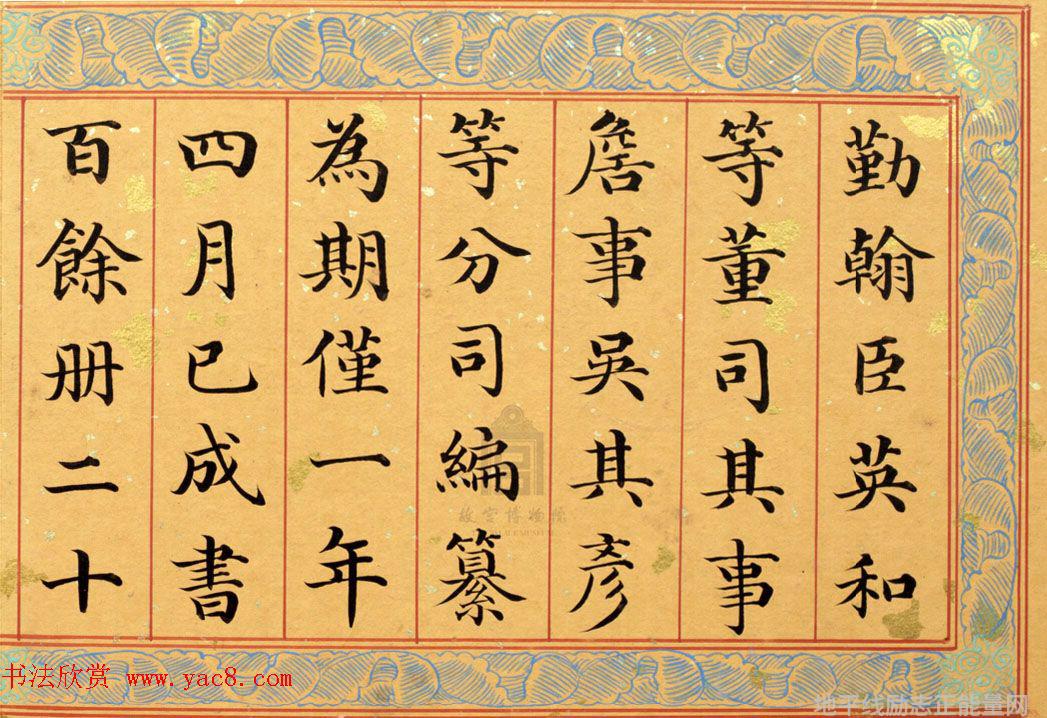 勤翰臣英和
等董司其事
詹事吳其彥
等分司編纂
為期僅一年
四月已成書
百餘册二十
故宮博物院
书法欣赏 www.yac8.com
地平线励志正能量网